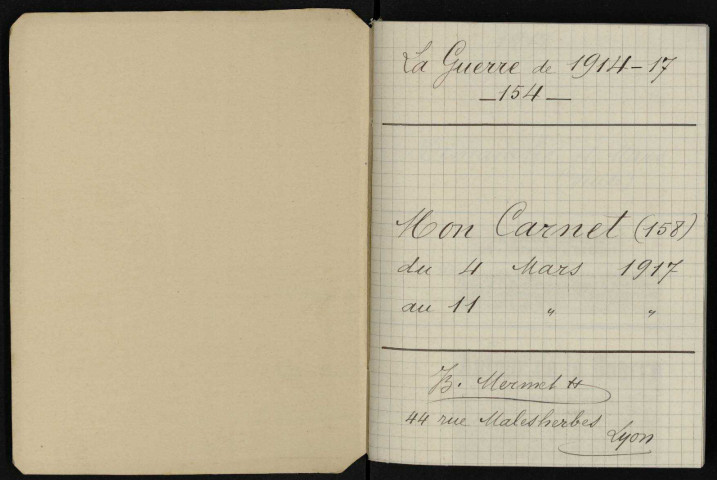 La Guerre de 1914-17
— 154 —
Mon Carnet (158)
du 4 Mars 1917
au 11 " "
B. Mermet
44 rue Malesherbes
Lyon